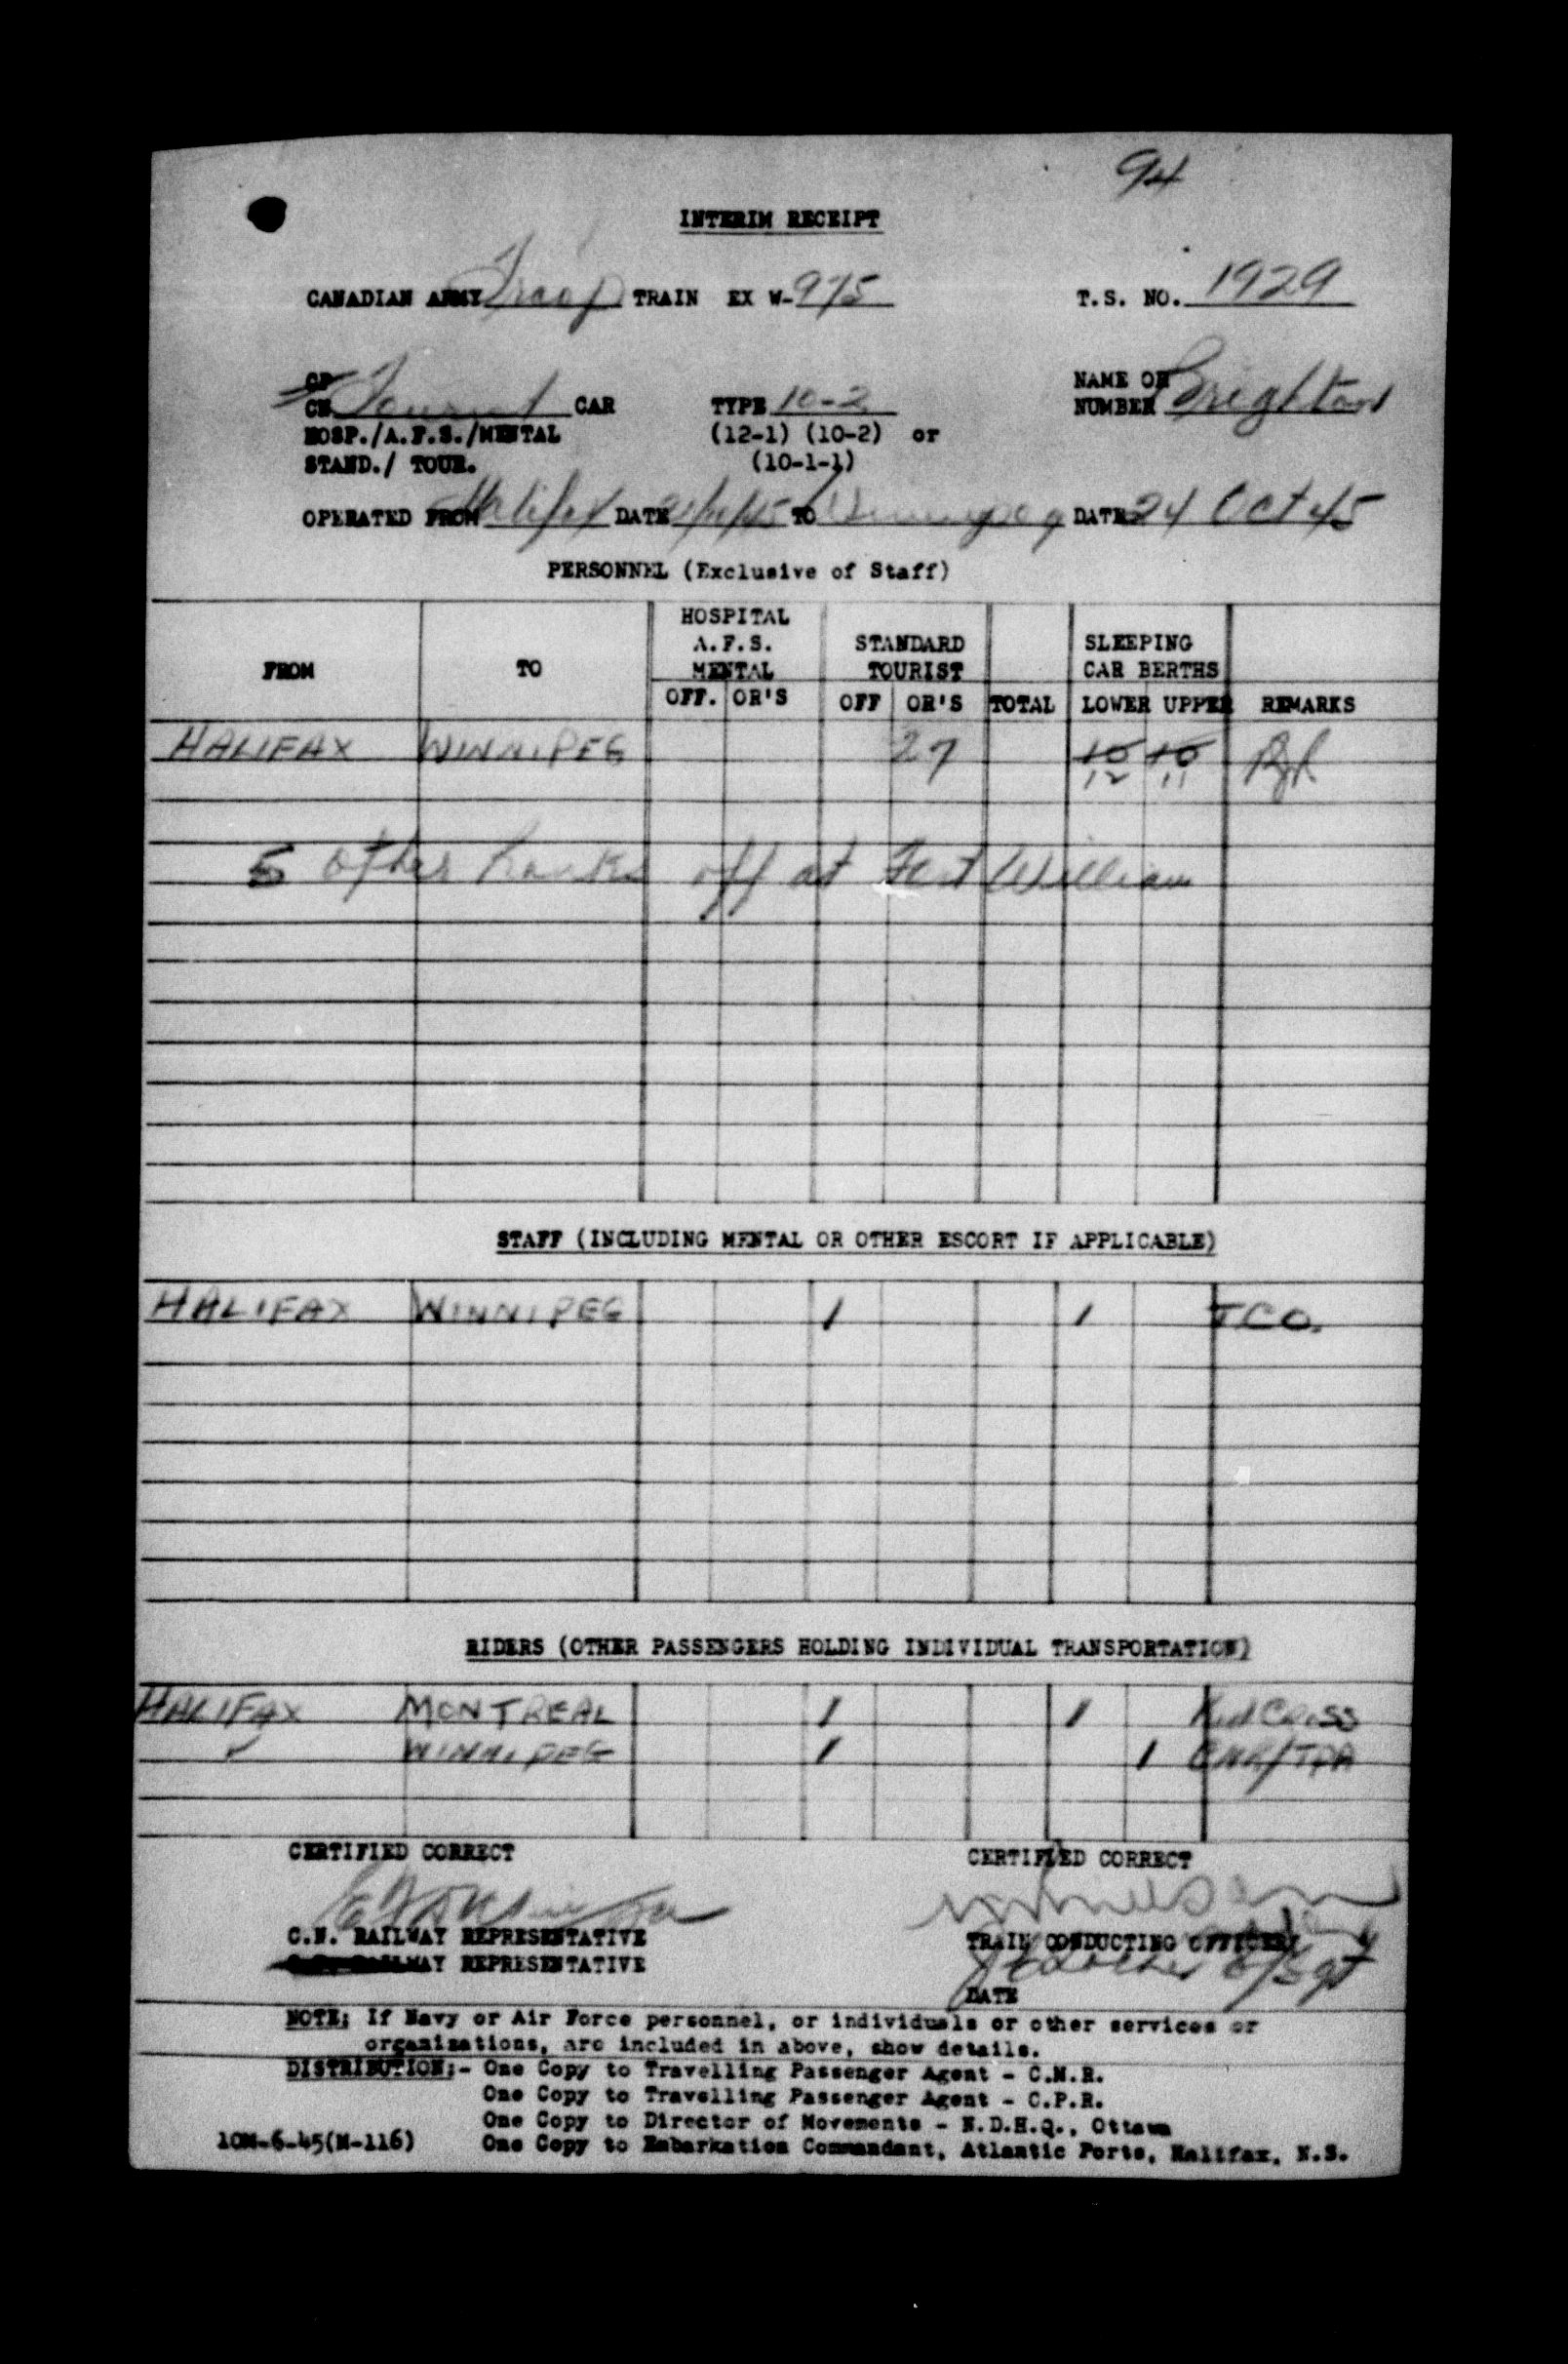 94
INTERIM RECEIPT
CANADIAN ARMY Troop TRAIN EX W-975 T.S. NO. 1929
CP
CN Tourist CAR TYPE 10-2 NAME OR NUMBER Brighton
HOSP./A.F.S./MENTAL (12-1) (10-2) or
STAND./ TOUR. (10-1-1)
OPERATED FROM Halifax DATE TO Winnipeg DATE 24 Oct 45
PERSONNEL (Exclusive of Staff)
FROM TO HOSPITAL A.F.S. MENTAL STANDARD TOURIST SLEEPING CAR BERTHS
OFF. OR'S OFF OR'S TOTAL LOWER UPPER REMARKS
HALIFAX WINNIPEG 27 10 10
12 11
5 other Ranks off at Fort William
STAFF (INCLUDING MENTAL OR OTHER ESCORT IF APPLICABLE)
HALIFAX WINNIPEG 1 1 TCO.
RIDERS (OTHER PASSENGERS HOLDING INDIVIDUAL TRANSPORTATION)
HALIFAX MONTREAL 1 1 Red Cross
✓ WINNIPEG 1 1 CNR/TPA
CERTIFIED CORRECT CERTIFIED CORRECT
C.N. RAILWAY REPRESENTATIVE TRAIN CONDUCTING OFFICER
C.P. RAILWAY REPRESENTATIVE S/Sgt
DATE
NOTE: If Navy or Air Force personnel, or individuals or other services or
organizations, are included in above, show details.
DISTRIBUTION:- One Copy to Travelling Passenger Agent - C.N.R.
One Copy to Travelling Passenger Agent - C.P.R.
One Copy to Director of Movements - N.D.H.Q., Ottawa
10M-6-45(M-116) One Copy to Embarkation Commandant, Atlantic Ports, Halifax, N.S.